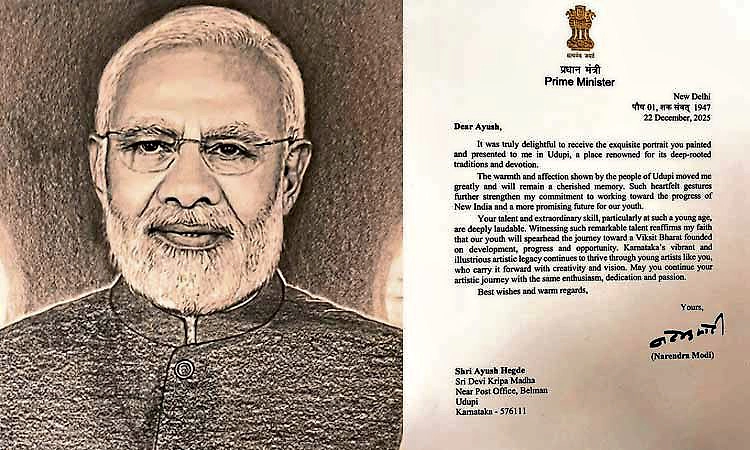 सत्यमेव जयते
प्रधान मंत्री
Prime Minister
New Delhi
पौष 01, शक संवत् 1947
22 December, 2025
Dear Ayush,
It was truly delightful to receive the exquisite portrait you painted
and presented to me in Udupi, a place renowned for its deep-rooted
traditions and devotion.
The warmth and affection shown by the people of Udupi moved me
greatly and will remain a cherished memory. Such heartfelt gestures
further strengthen my commitment to working toward the progress of
New India and a more promising future for our youth.
Your talent and extraordinary skill, particularly at such a young age,
are deeply laudable. Witnessing such remarkable talent reaffirms my faith
that our youth will spearhead the journey toward a Viksit Bharat founded
on development, progress and opportunity. Karnataka's vibrant and
illustrious artistic legacy continues to thrive through young artists like you,
who carry it forward with creativity and vision. May you continue your
artistic journey with the same enthusiasm, dedication and passion.
Best wishes and warm regards,
Yours,
(Narendra Modi)
Shri Ayush Hegde
Sri Devi Kripa Madha
Near Post Office, Belman
Udupi
Karnataka - 576111